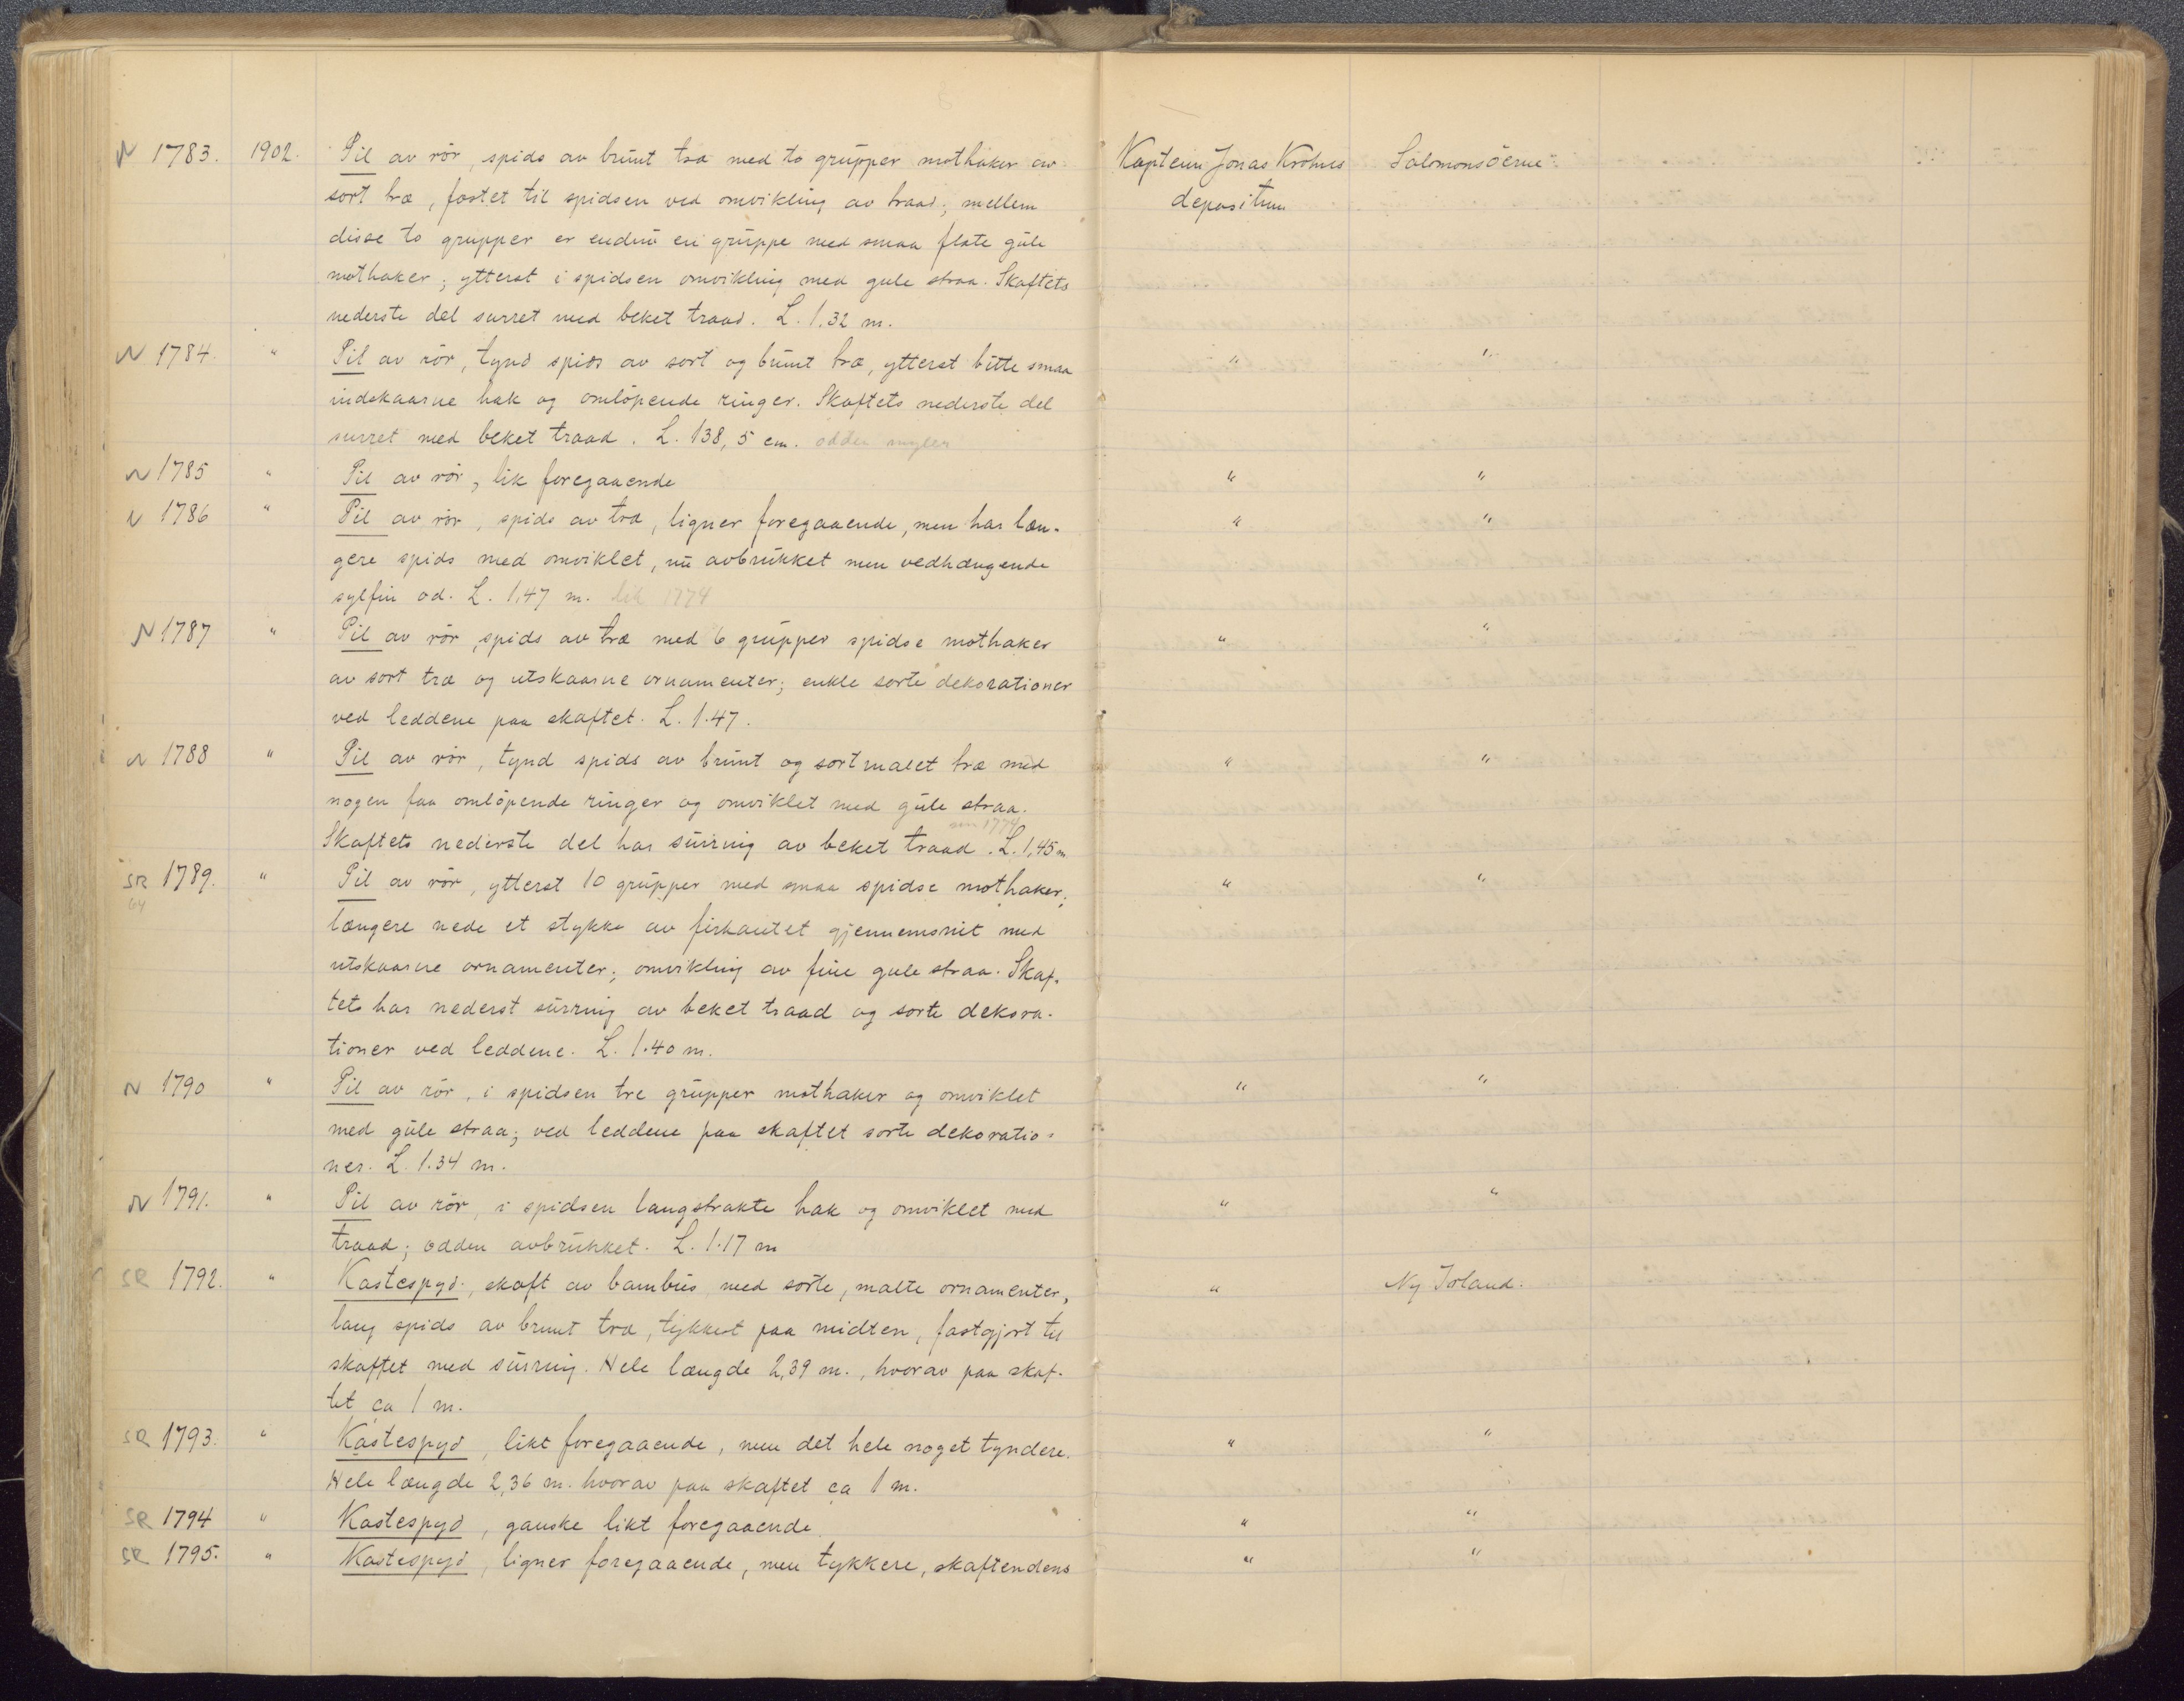 N 1783. 1902. Pil av rör, spids av brunt træ med to grupper mothaker av Kaptein Jonas Krohns Salomonsöerne.
sort træ, fæstet til spidsen ved omvikling av traad; mellem depositum
disse to grupper er endnu en gruppe med smaa flate gule
mothaker; ytterst i spidsen omvikling med gule straa. Skaftets
nederste del surret med beket traad. L. 1.32 m.
N 1784. " Pil av rör, tynd spids av sort og brunt træ, ytterst bitte smaa " "
indskaarne hak og omlöpende ringer. Skaftets nederste del
surret med beket traad. L. 138,5 cm. odden mangler
N 1785 " Pil av rör, lik foregaaende " "
N 1786 " Pil av rör, spids av træ, ligner foregaaende, men har læn- " "
gere spids med omviklet, nu avbrukket men vedhængende
sylfin od. L. 1.47 m. lik 1774
N 1787 " Pil av rör, spids av træ med 6 grupper spidse mothaker " "
av sort træ og utskaarne ornamenter; enkle sorte dekorationer
ved leddene paa skaftet. L. 1.47.
N 1788 " Pil av rör, tynd spids av brunt og sortmalet træ med " "
nogen faa omlöpende ringer og omviklet med gule straa.
som 1774
Skaftets nederste del har surring av beket traad. L. 1,45 m
SR 1789. " Pil av rör, ytterst 10 grupper med smaa spidse mothaker; " "
64
længere nede et stykke av firkantet gjennemsnit med
utskaarne ornamenter; omvikling av fine gule straa. Skaf-
tets har nederst surring av beket traad og sorte dekora-
tioner ved leddene. L. 1.40 m.
N 1790 " Pil av rör, i spidsen tre grupper mothaker og omviklet " "
med gule straa; ved leddene paa skaftet sorte dekoratio-
ner. L. 1.34 m.
N 1791. " Pil av rör, i spidsen langstrakte hak og omviklet med " "
traad; odden avbrukket. L. 1.17 m
SR 1792. " Kastespyd, skaft av bambus med sorte, malte ornamenter, " Ny Irland.
lang spids av brunt træ, tykkest paa midten, fastgjort til
skaftet med surring. Hele længde 2,39 m., hvorav paa skaf-
tet ca 1 m.
SR 1793. " Kastespyd, likt foregaaende, men det hele noget tyndere. " "
Hele længde 2,36 m. hvorav paa skaftet ca 1 m.
SR 1794 " Kastespyd, ganske likt foregaaende. " "
SR 1795. " Kastespyd, ligner foregaaende, men tykkere, skaftendens " "